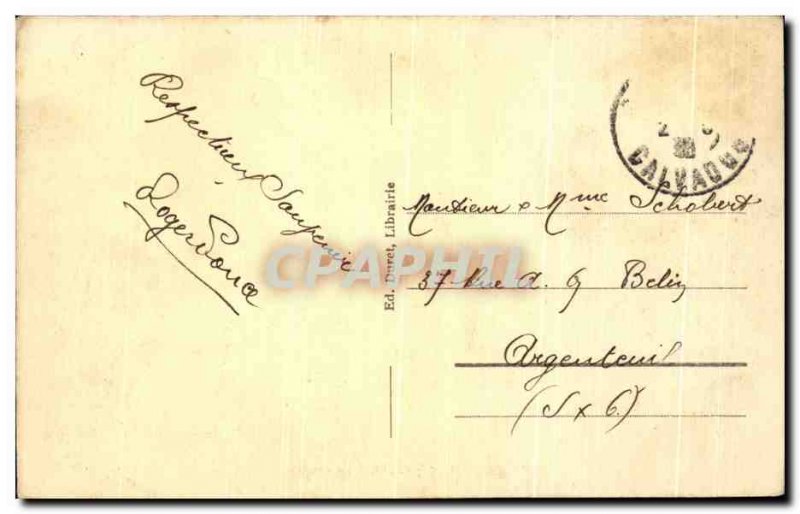 Respectueux Souvenir
Roger
CALVADOS
Monsieur & Mme Schobert
37 Rue A. G Belin
Argenteuil
(S x 6.)
Ed. Duret, Librairie
CPAPHIL